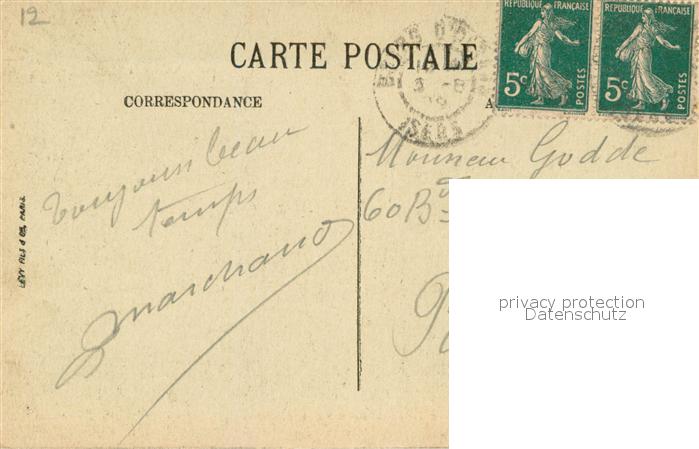 12
CARTE POSTALE
CORRESPONDANCE
A
RÉPUBLIQUE FRANÇAISE
5c
POSTES
RÉPUBLIQUE FRANÇAISE
5c
POSTES
BOURG D'
ISÈRE
Toujours beau
temps
Marchand
Monsieur Godde
60 Bd
P
LÉVY FILS & Cie, PARIS
privacy protection
Datenschutz